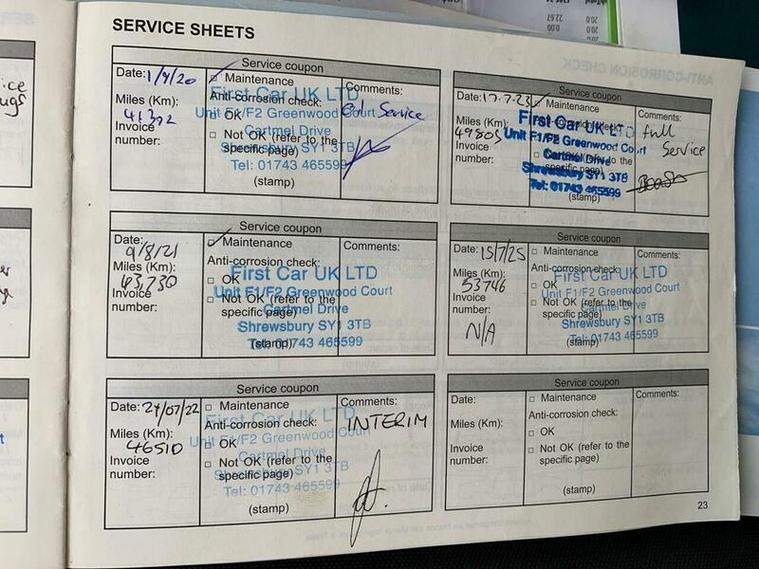 SERVICE SHEETS
Service coupon
Date: 1/9/20
Maintenance
Comments:
Miles (Km): 41392
Anti-corrosion check:
Service
OK
Invoice number:
Not OK (refer to the specific page)
First Car UK LTD
Unit F1/F2 Greenwood Court
Cartmel Drive
Shrewsbury SY1 3TB
Tel: 01743 465599
(stamp)
Service coupon
Date: 9/8/21
Maintenance
Comments:
Miles (Km): 43,730
Anti-corrosion check:
OK
Invoice number:
Not OK (refer to the specific page)
First Car UK LTD
Unit F1/F2 Greenwood Court
Cartmel Drive
Shrewsbury SY1 3TB
Tel: 01743 465599
(stamp)
Service coupon
Date: 27/07/22
Maintenance
Comments:
INTERIM
Miles (Km): 46510
Anti-corrosion check:
OK
Invoice number:
Not OK (refer to the specific page)
First Car UK LTD
Unit F1/F2 Greenwood Court
Cartmel Drive
Shrewsbury SY1 3TB
Tel: 01743 465599
(stamp)
Service coupon
Date: 17.7.23
Maintenance
Comments:
full
Service
Miles (Km): 49805
Invoice number:
First Car UK LTD
Unit F1/F2 Greenwood Court
Cartmel Drive
Shrewsbury SY1 3TB
Tel: 01743 465599
(stamp)
Service coupon
Date: 15/7/25
Maintenance
Comments:
Miles (Km): 53746
Anti-corrosion check:
OK
Invoice number: N/A
Not OK (refer to the specific page)
First Car UK LTD
Unit F1/F2 Greenwood Court
Cartmel Drive
Shrewsbury SY1 3TB
Tel: 01743 465599
(stamp)
Service coupon
Date:
Maintenance
Comments:
Miles (Km):
Anti-corrosion check:
OK
Invoice number:
Not OK (refer to the specific page)
(stamp)
23